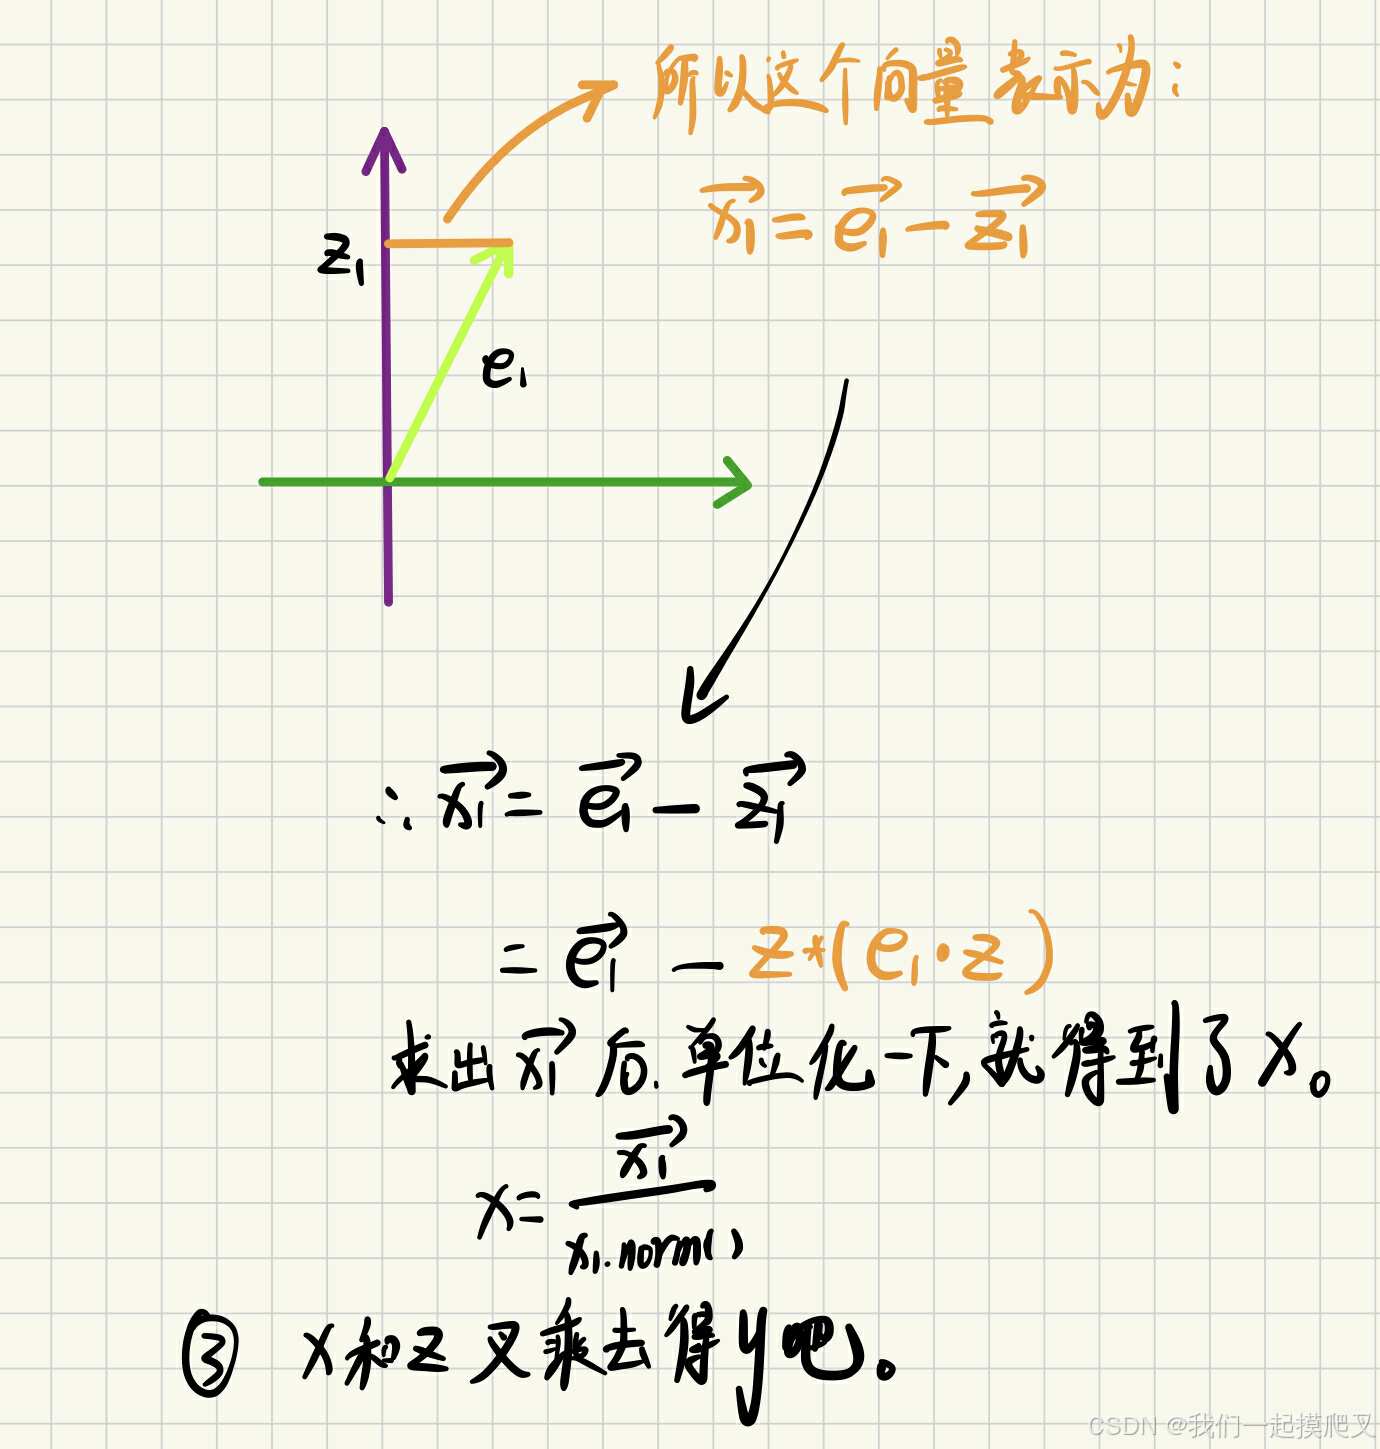 所以这个向量表示为：
x₁ = e₁ - z₁
z₁
e₁
∴ x₁ = e₁ - z₁
= e₁ - z*(e₁·z)
求出x₁后.单位化一下,就得到了x。
x = x₁
x₁.norm()
③ x和z叉乘去得y吧。
CSDN @我们一起摸爬叉